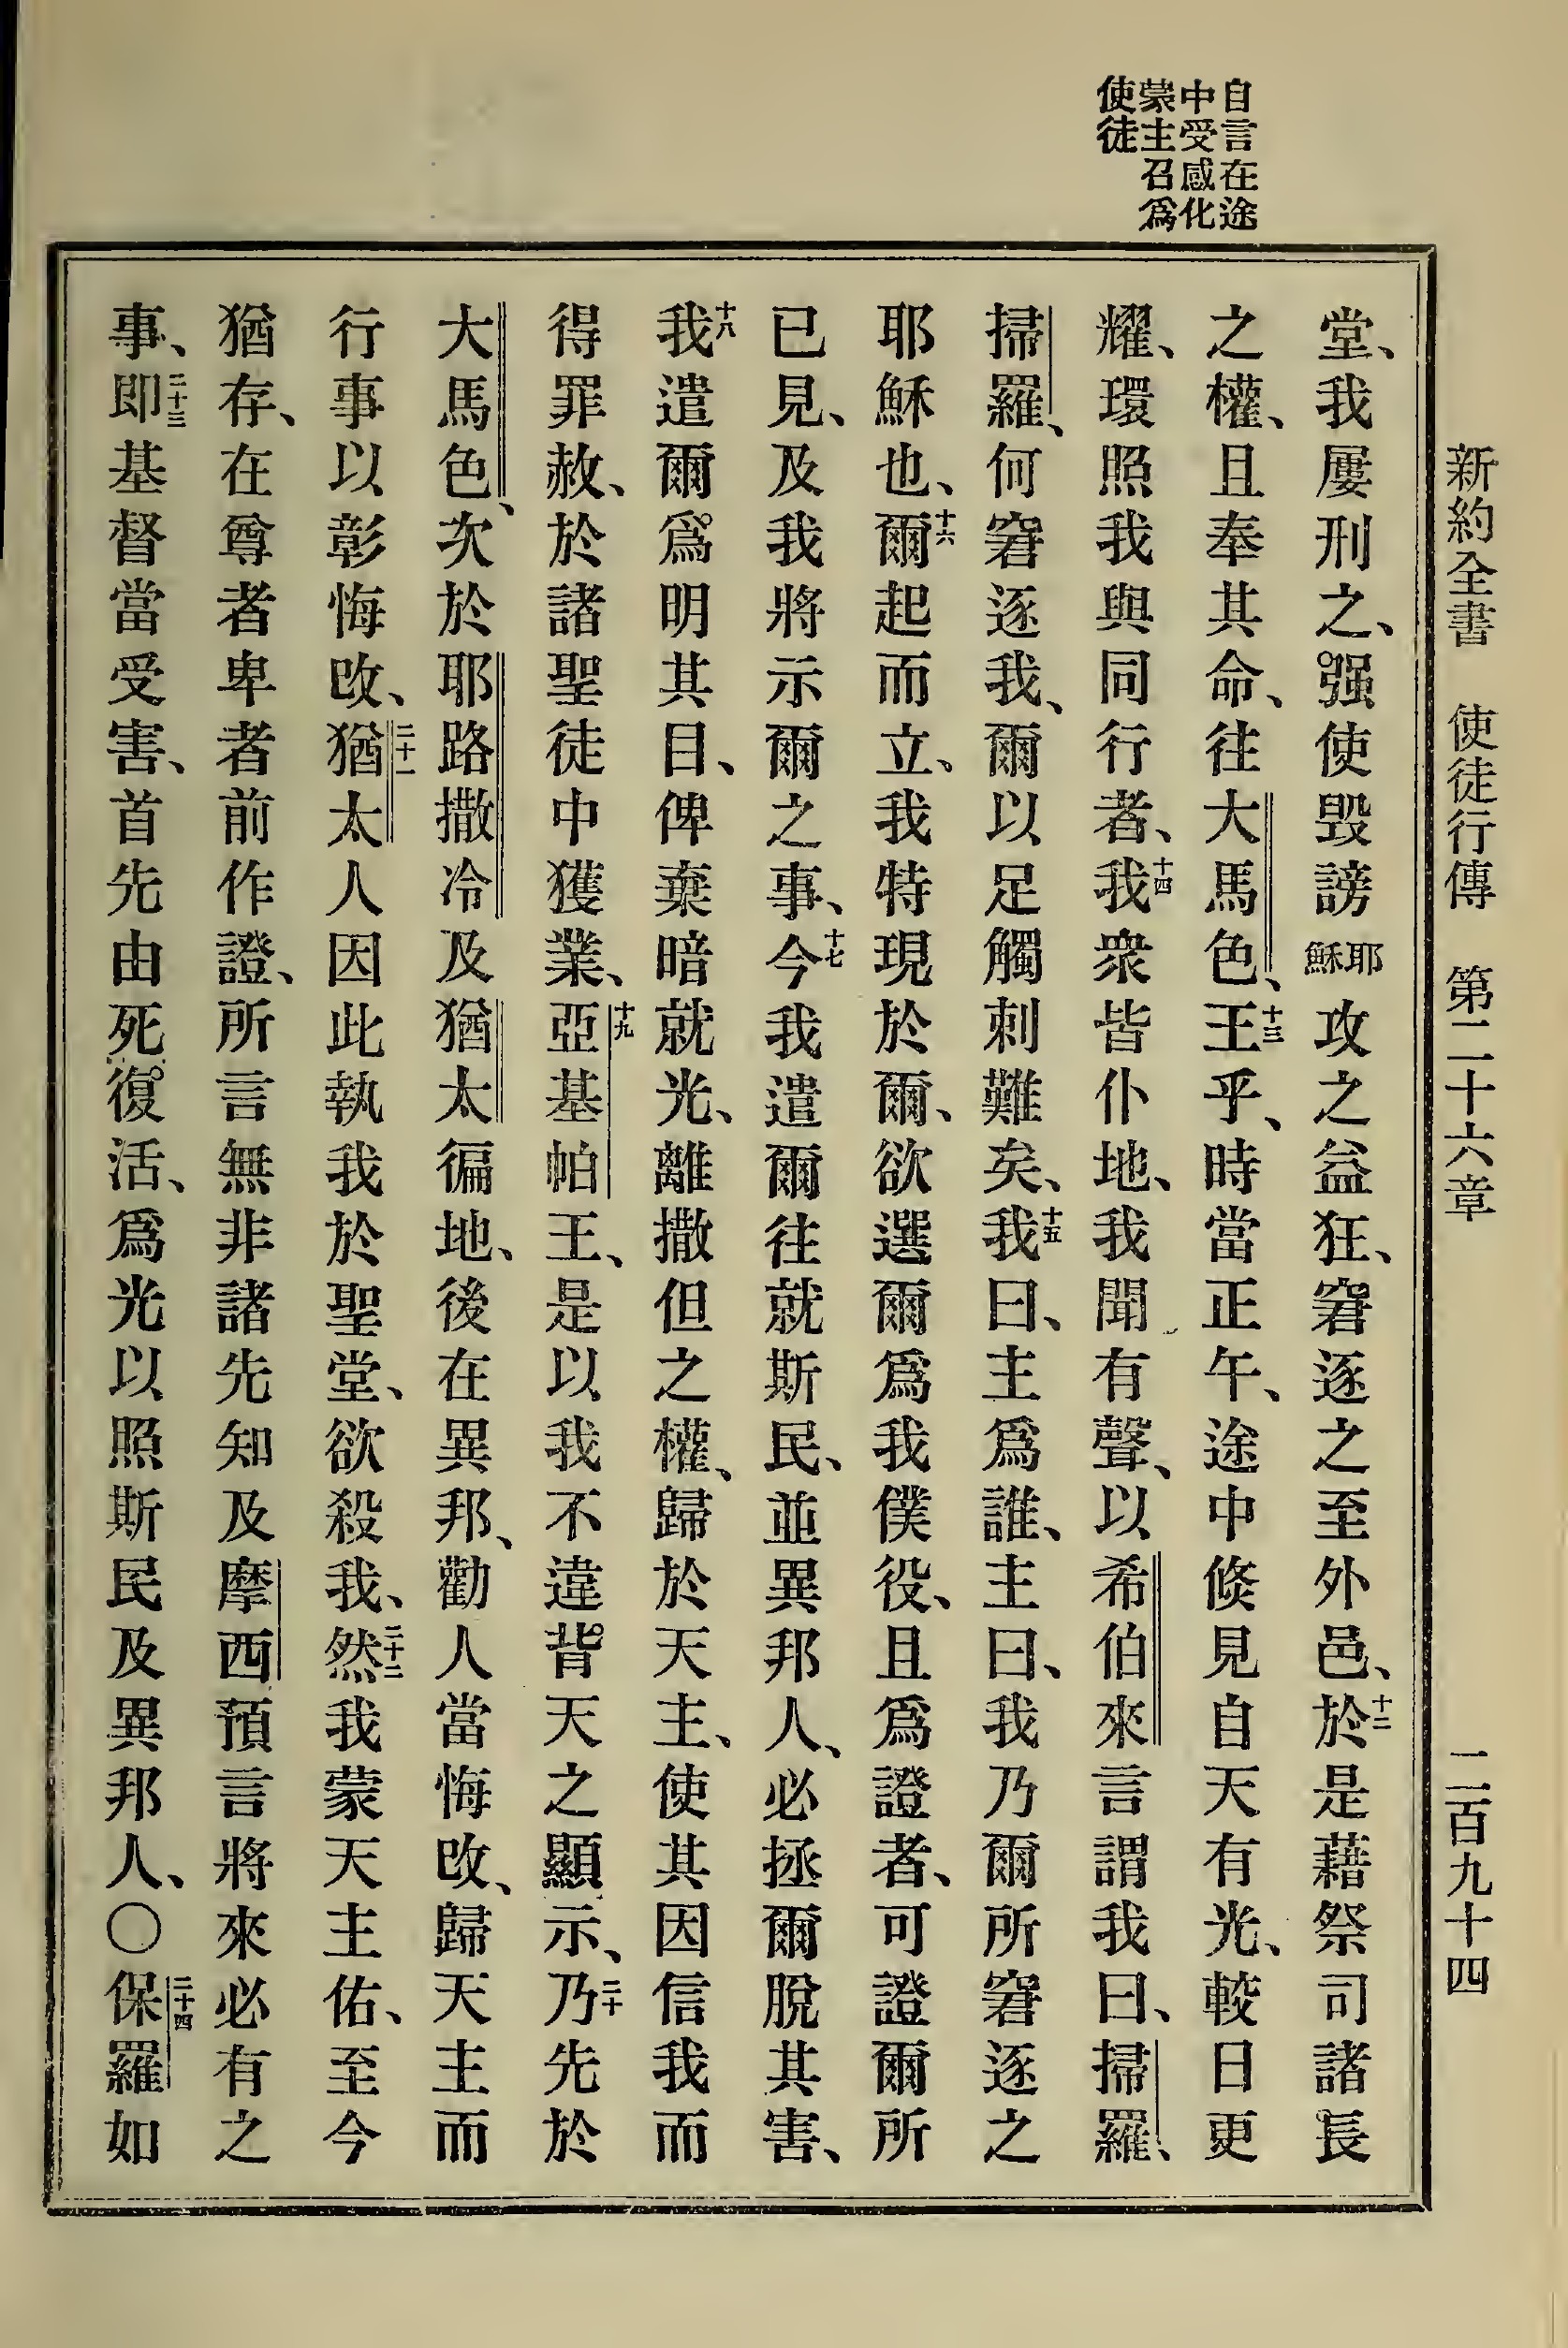 新約全書 使徒行傳 第二十六章 二百九十四
自言在途
中受感化
蒙主召爲
使徒
堂、我屢刑之、强使毀謗耶穌攻之益狂、窘逐之至外邑、十二於是藉祭司諸長
之權、且奉其命、往大馬色、十三王乎、時當正午、途中倐見自天有光、較日更
耀、環照我與同行者、十四我衆皆仆地、我聞有聲、以希伯來言謂我曰、掃羅、
掃羅、何窘逐我、爾以足觸刺難矣、十五我曰、主爲誰、主曰、我乃爾所窘逐之
耶穌也、十六爾起而立、我特現於爾、欲選爾爲我僕役、且爲證者、可證爾所
已見、及我將示爾之事、十七今我遣爾往就斯民、並異邦人、必拯爾脫其害、
十八我遣爾爲明其目、俾棄暗就光、離撒但之權、歸於天主、使其因信我而
得罪赦、於諸聖徒中獲業、十九亞基帕王、是以我不違背天之顯示、二十乃先於
大馬色、次於耶路撒冷及猶太徧地、後在異邦、勸人當悔改、歸天主而
行事以彰悔改、二十一猶太人因此執我於聖堂、欲殺我、二十二然我蒙天主佑、至今
猶存、在尊者卑者前作證、所言無非諸先知及摩西預言將來必有之
事、二十三即基督當受害、首先由死復活、爲光以照斯民及異邦人、〇二十四保羅如